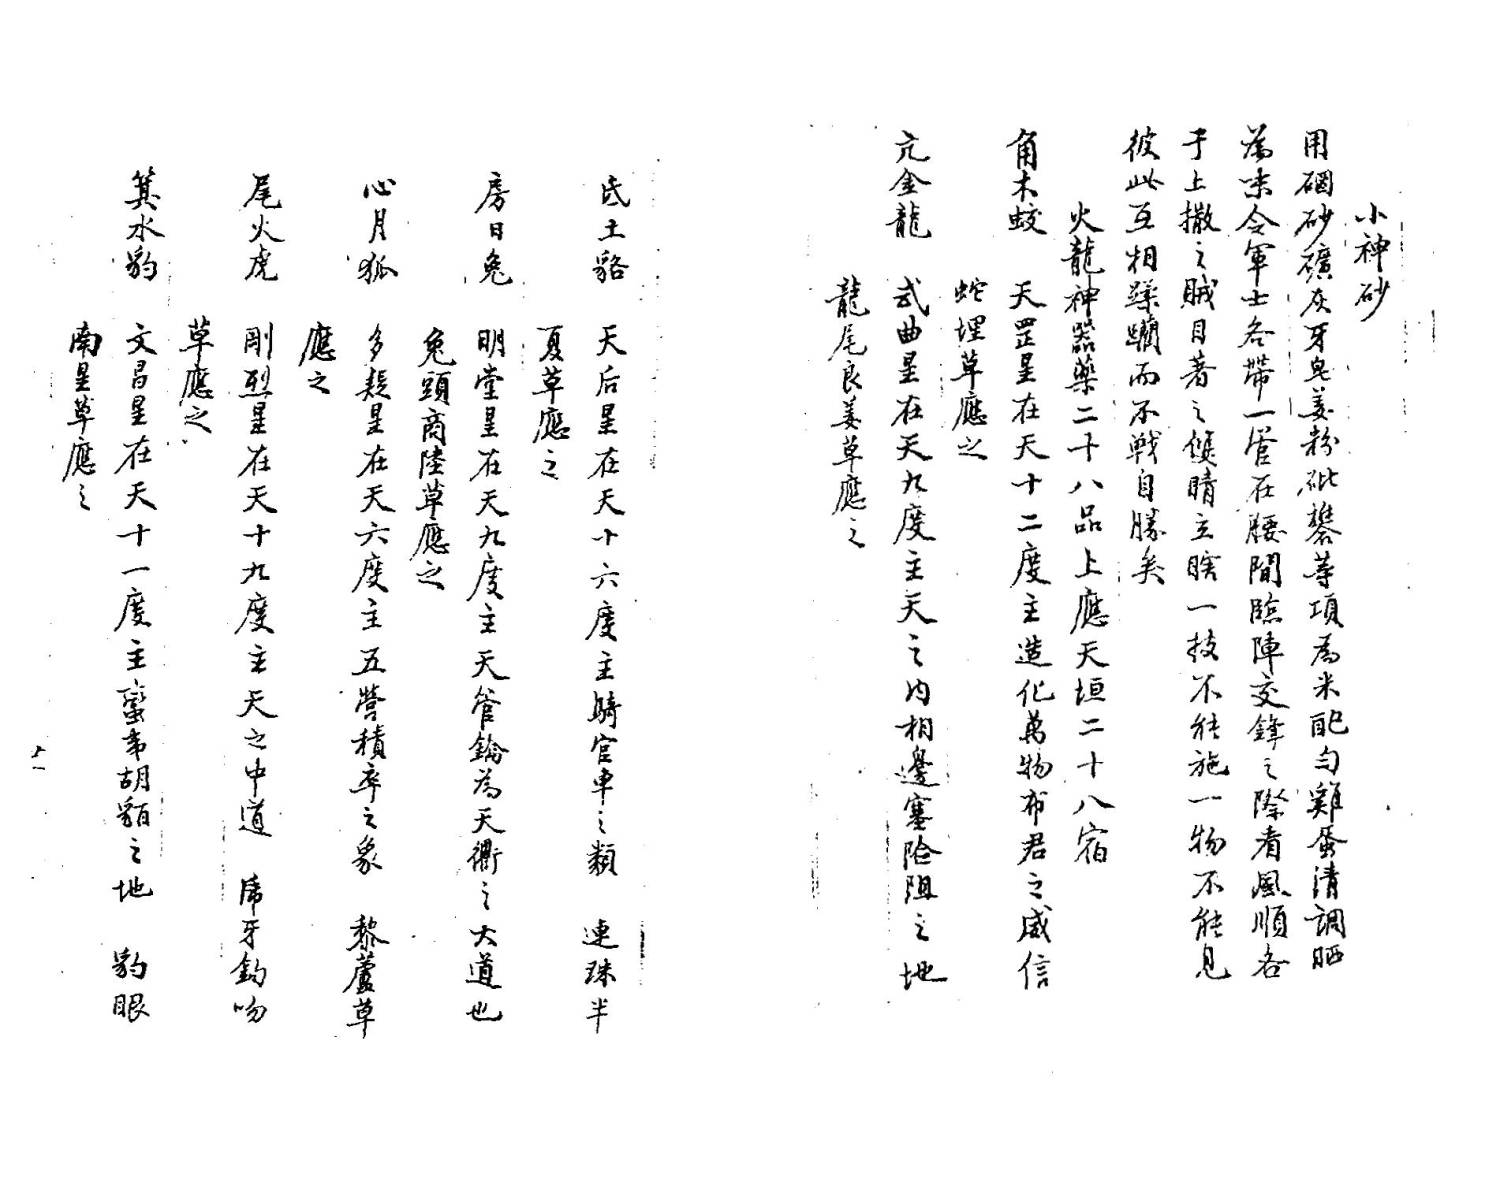 小神砂
用硇砂礦灰牙皂姜粉砒礬等項為米配勻雞蛋清調晒
為味令軍士各帶一管在腰間臨陣交鋒之際看風順各
于上撒之賊目著之雙睛立瞎一技不能施一物不能見
彼此互相蹂躪而不戰自勝矣
火龍神器藥二十八品上應天垣二十八宿
角木蛟 天罡星在天十二度主造化萬物布君之威信
蛇埋草應之
亢金龍 武曲星在天九度主天之內相邊塞險阻之地
龍尾良姜草應之
氐土貉 天后星在天十六度主騎官車之類 連珠半
夏草應之
房日兔 明堂星在天九度主天管鑰為天衢之大道也
兔頭商陸草應之
心月狐 多疑星在天六度主五營積卒之象 藜蘆草
應之
尾火虎 剛烈星在天十九度主天之中道 虎牙鈎吻
草應之
箕水豹 文昌星在天十一度主蠻夷胡貊之地 豹眼
南星草應之